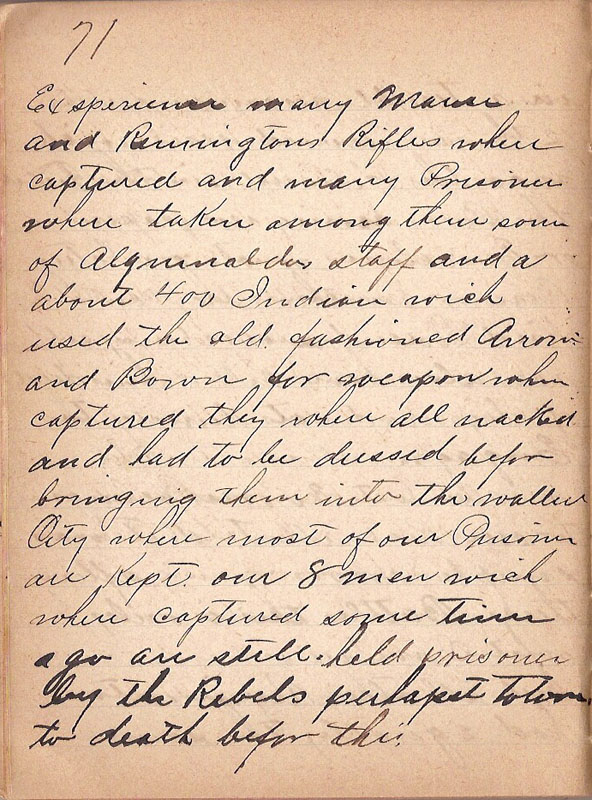 71
Exsperienc many Mauser
and Remingtons Rifles where
captured and many Prisoner
where taken among them som
of Algunaldos staff and a
about 400 Indian wich
used the old fashioned Arrow
and Bown for weapon when
captured they where all nacked
and had to be dressed befor
bringing them into the walled
City where most of our Prisoner
are Kept. our 8 men wich
where captured some time
ago are still held prisoner
by the Rebels perhapst
to death befor this.